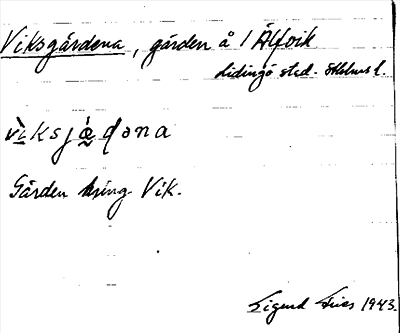 Viksgårdena, gården å 1 Älfvik
Lidingö stad. Sthlms l.
vìksjæ̀ɖəna
Gården kring Vik.
Sigurd Fries 1943.